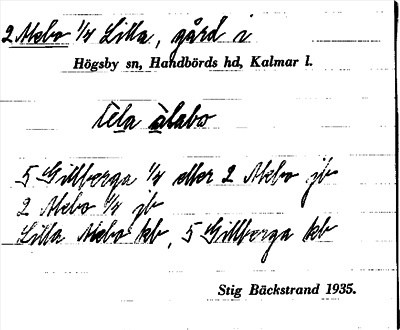 2 Alebo 1/4 Lilla, gård i
Högsby sn, Handbörds hd, Kalmar l.
lila àlabo
5 Gillberga 1/4 eller 2 Alebo jb
2 Alebo 1/4 jb
Lilla Alebo kb, 5 Gillberga kb
Stig Bäckstrand 1935.